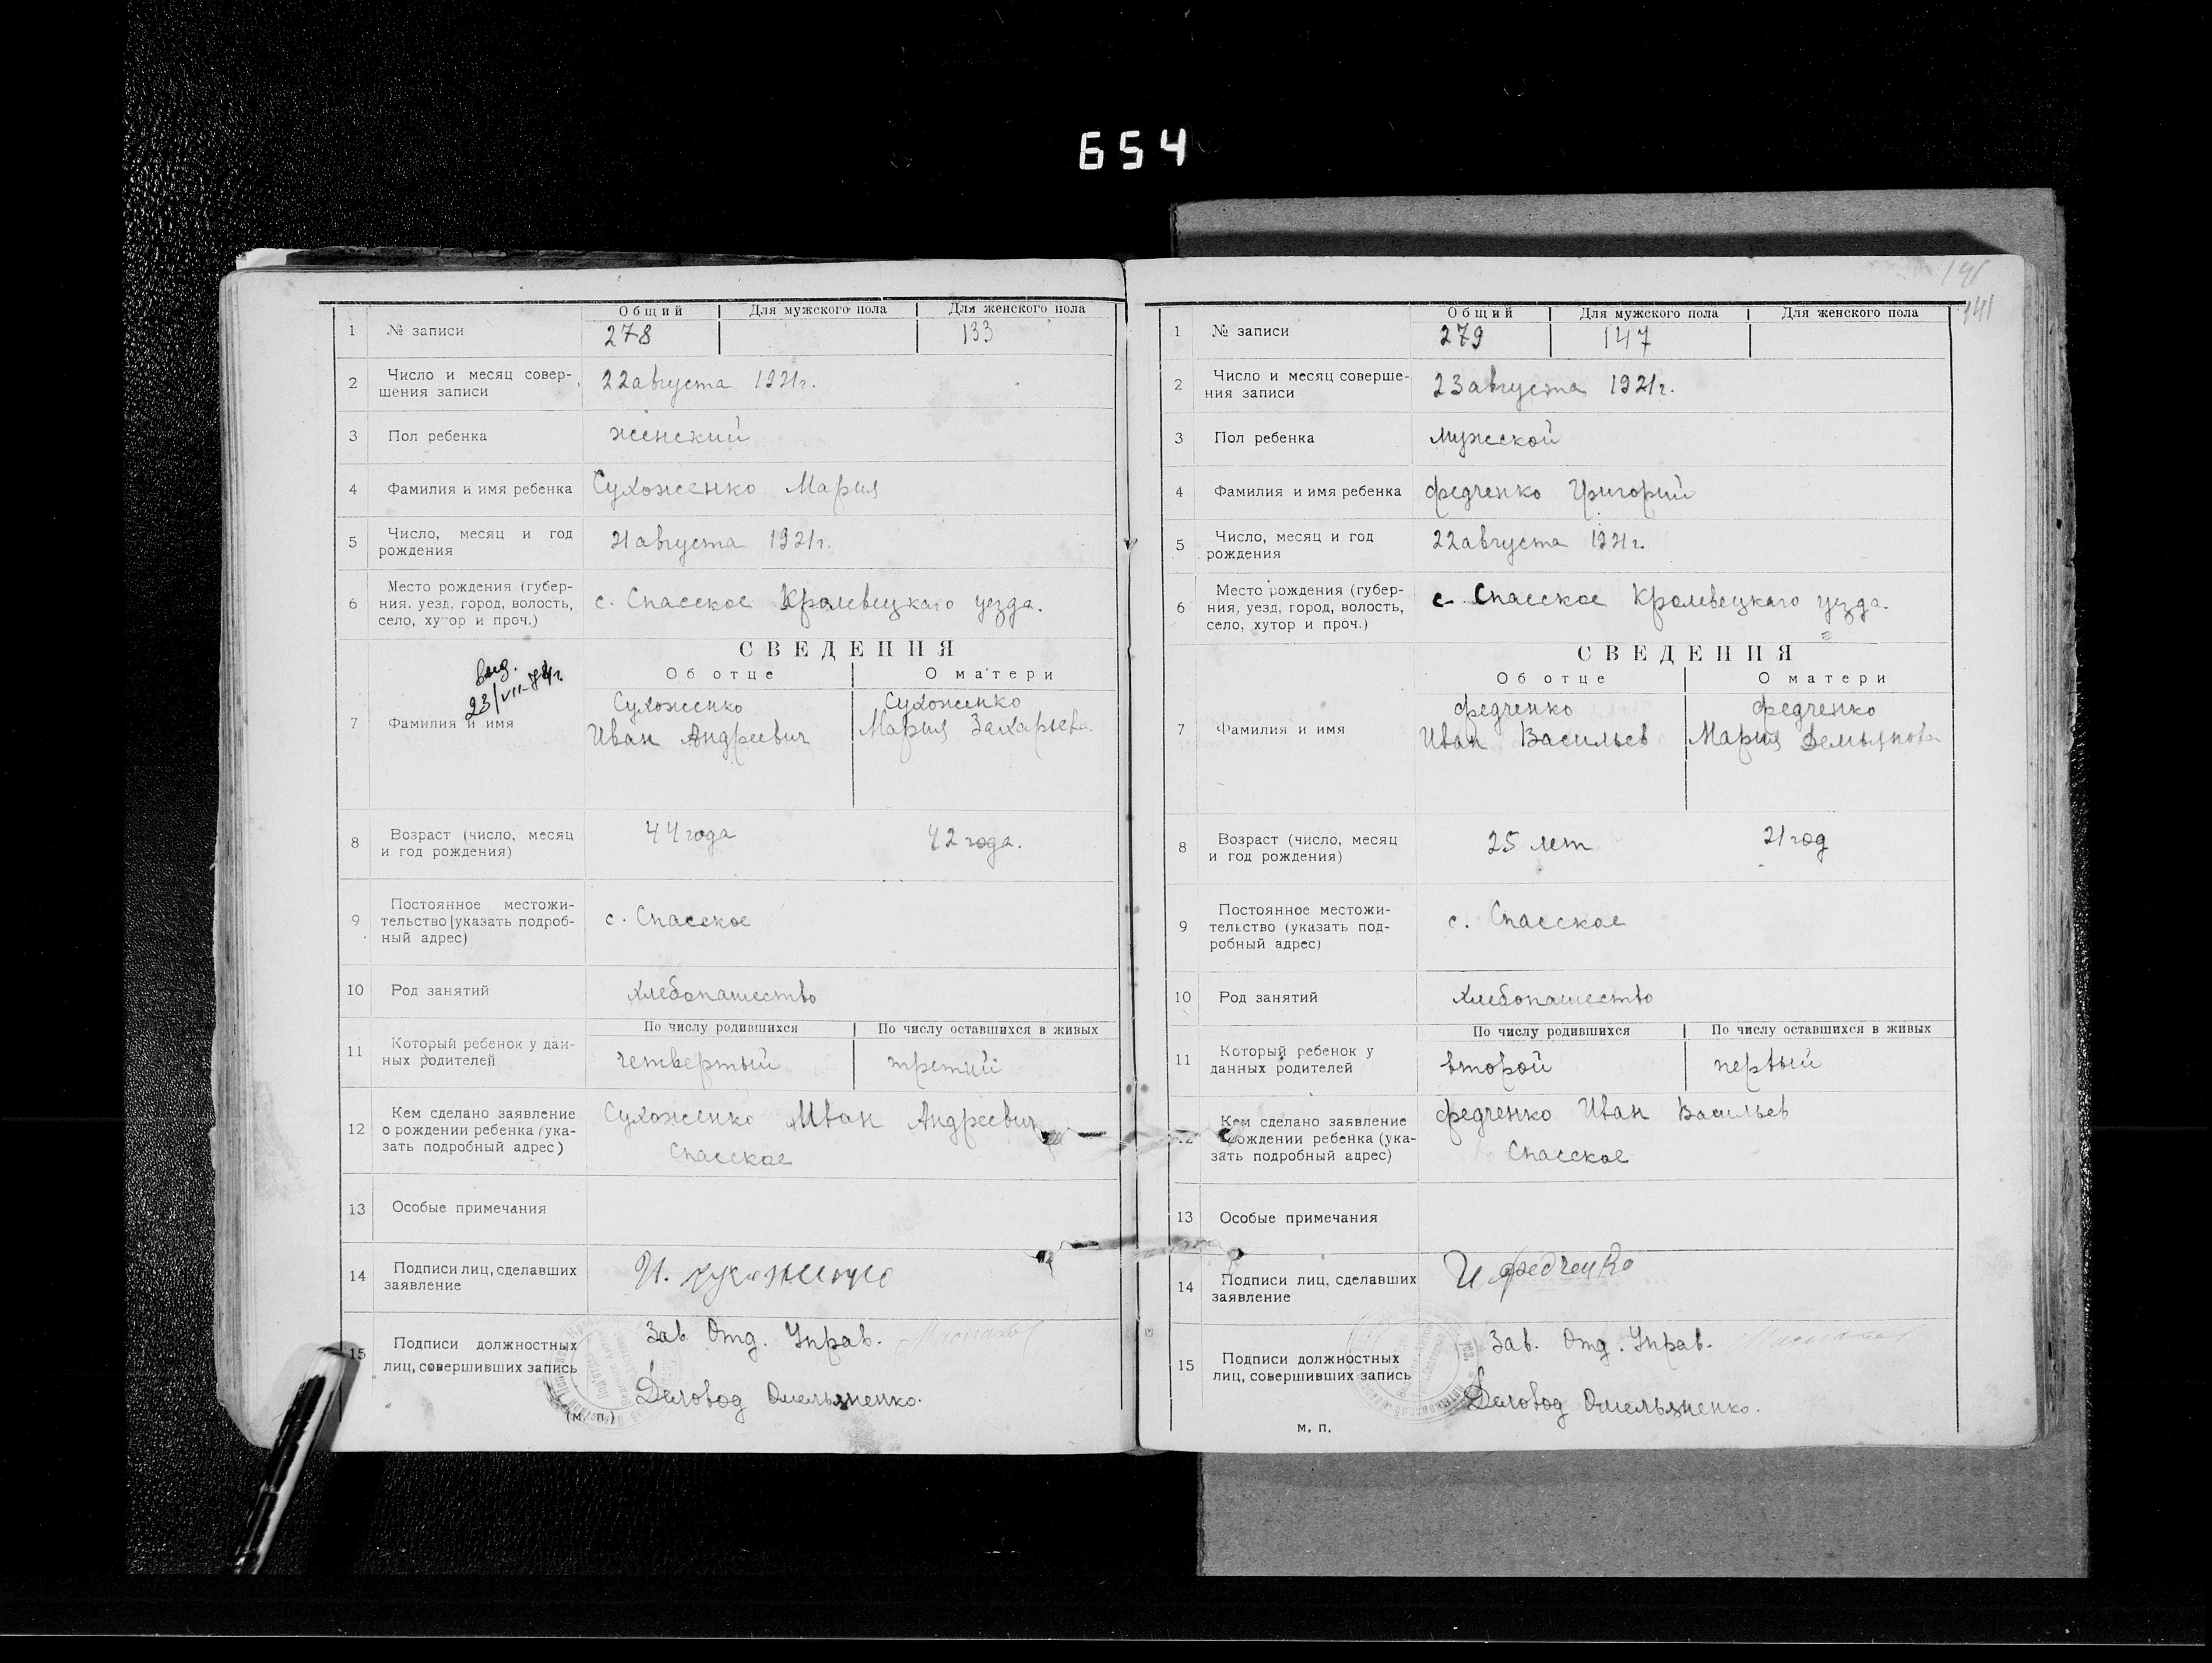 654
Общий Для мужского пола Для женского пола
1 № записи 278 133
2 Число и месяц совер-
шения записи 22 августа 1921г.
3 Пол ребенка женский
4 Фамилия и имя ребенка Сухоженко Мария
5 Число, месяц и год
рождения 21 августа 1921г.
6 Место рождения (губер-
ния, уезд, город, волость,
село, хутор и проч.) с. Спасское Кролевецкаго уезда.
СВЕДЕНИЯ
Об отце О матери
выд.
23/VII-74г.
7 Фамилия и имя
Сухоженко Сухоженко
Иван Андреевич Мария Захарьева
8 Возраст (число, месяц
и год рождения) 44 года 42 года.
9 Постоянное местожи-
тельство (указать подроб-
ный адрес) с. Спасское
10 Род занятий хлебопашество
По числу родившихся По числу оставшихся в живых
11 Который ребенок у дан-
ных родителей четвертый третий
12 Кем сделано заявление
о рождении ребенка (ука-
зать подробный адрес) Сухоженко Иван Андреевич
Спасское
13 Особые примечания
14 Подписи лиц, сделавших
заявление И. Сухоженко
15 Подписи должностных
лиц, совершивших запись Зав. Отд. Управ.
Деловод Омельяненко.
(м. п.)
141
Общий Для мужского пола Для женского пола
1 № записи 279 147
2 Число и месяц соверше-
ния записи 23 августа 1921г.
3 Пол ребенка мужской
4 Фамилия и имя ребенка Федченко Григорий
5 Число, месяц и год
рождения 22 августа 1921г.
6 Место рождения (губер-
ния, уезд, город, волость,
село, хутор и проч.) с. Спасское Кролевецкаго уезда.
СВЕДЕНИЯ
Об отце О матери
7 Фамилия и имя
Федченко Федченко
Иван Васильев Мария Демьянова
8 Возраст (число, месяц
и год рождения) 25 лет 21 год
9 Постоянное местожи-
тельство (указать под-
робный адрес) с. Спасское
10 Род занятий хлебопашество
По числу родившихся По числу оставшихся в живых
11 Который ребенок у
данных родителей второй первый
12 Кем сделано заявление
о рождении ребенка (ука-
зать подробный адрес) Федченко Иван Васильев
Спасское
13 Особые примечания
14 Подписи лиц, сделавших
заявление И Федченко
15 Подписи должностных
лиц, совершивших запись Зав. Отд. Управ.
Деловод Омельяненко.
м. п.